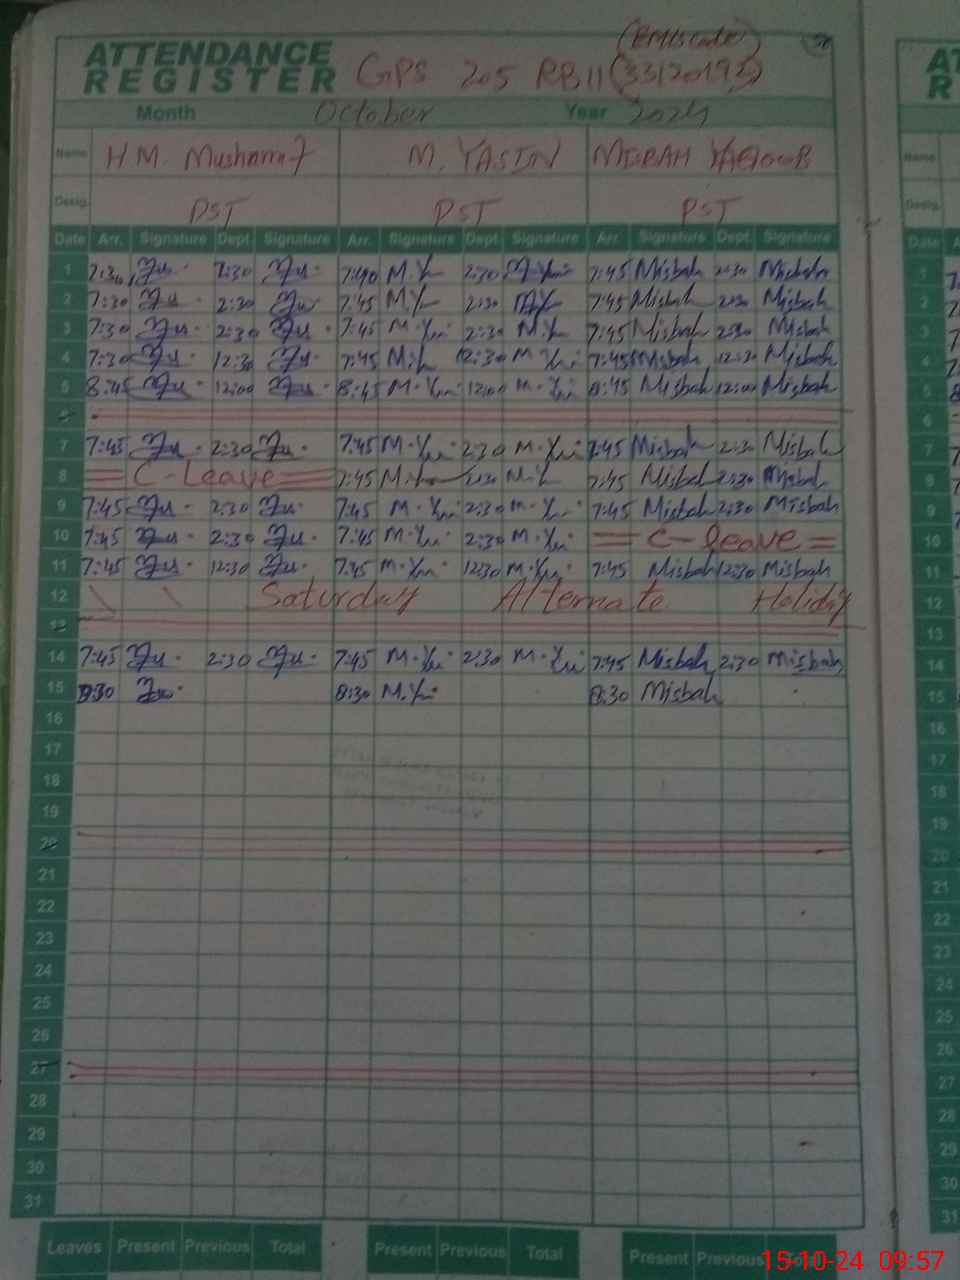 ATTENDANCE REGISTER GPS 205 RB II (EMIS code) (33120192)
Month October Year 2024
Name H M. Musharraf M. YASIN MISBAH YAQOOB
Desig. PST PST PST
Date Arr. Signature Dept. Signature Arr. Signature Dept. Signature Arr. Signature Dept. Signature
1 7:30 2:30 7:40 M.Y 2:30 M.Y 7:45 Misbah 2:30 Misbah
2 7:30 2:30 7:45 M.Y 2:30 M.Y 7:45 Misbah 2:30 Misbah
3 7:30 2:30 7:45 M.Y 2:30 M.Y 7:45 Misbah 2:30 Misbah
4 7:30 12:30 7:45 M.Y 12:30 M.Y 7:45 Misbah 12:30 Misbah
5 8:45 12:00 8:45 M.Y 12:00 M.Y 8:45 Misbah 12:00 Misbah
6
7 7:45 2:30 7:45 M.Y 2:30 M.Y 7:45 Misbah 2:30 Misbah
8 C-Leave 7:45 M.Y 2:30 M.Y 7:45 Misbah 2:30 Misbah
9 7:45 2:30 7:45 M.Y 2:30 M.Y 7:45 Misbah 2:30 Misbah
10 7:45 2:30 7:45 M.Y 2:30 M.Y C-leave
11 7:45 12:30 7:45 M.Y 12:30 M.Y 7:45 Misbah 12:30 Misbah
12 Saturday Alternate Holiday
13
14 7:45 2:30 7:45 M.Y 2:30 M.Y 7:45 Misbah 2:30 Misbah
15 8:30 8:30 M.Y 8:30 Misbah
16
17
18
19
20
21
22
23
24
25
26
27
28
29
30
31
Leaves Present Previous Total Present Previous Total Present Previous Total
15-10-24 09:57